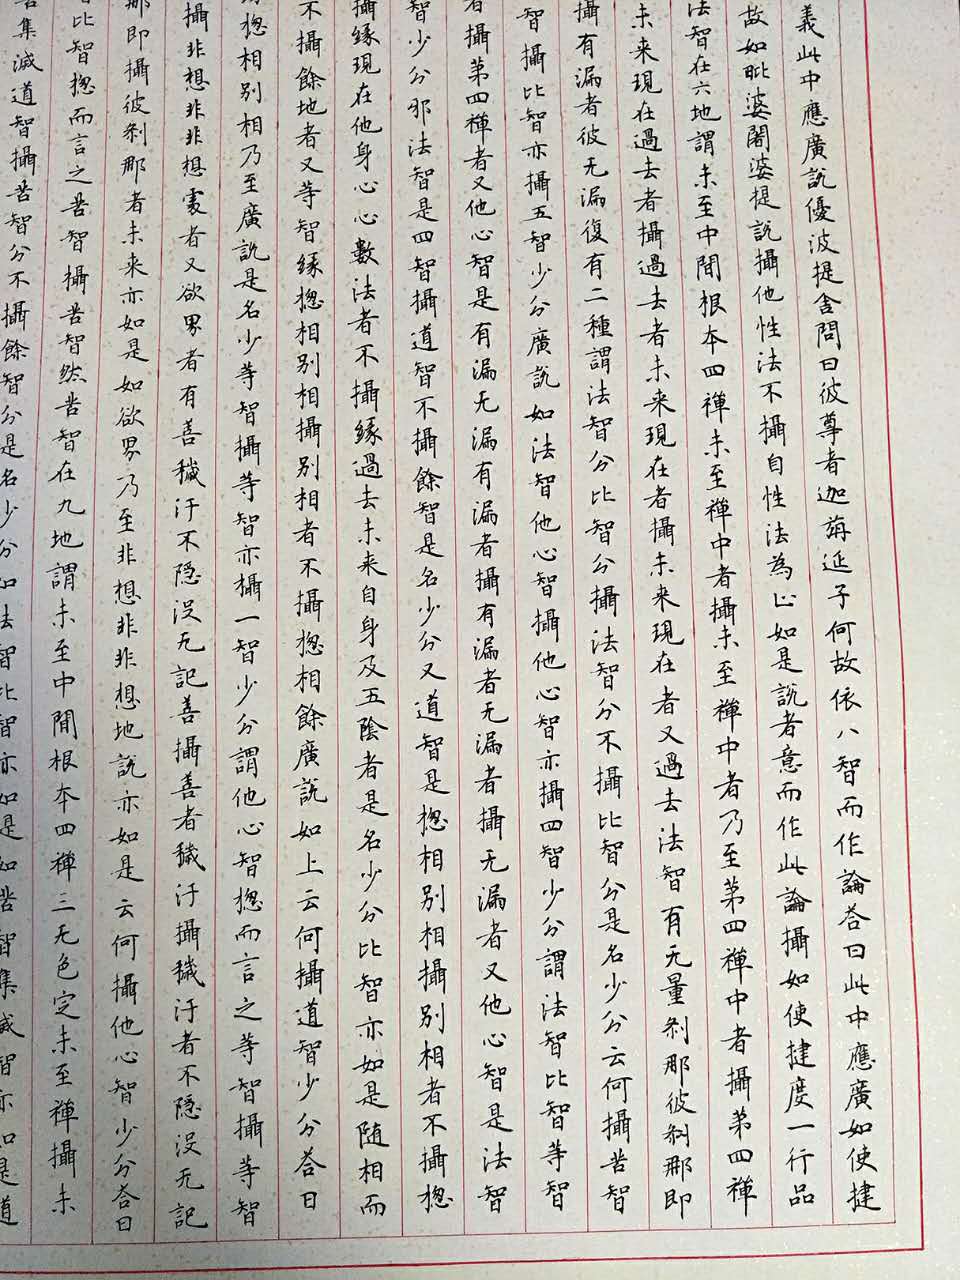 義此中應廣說優波提舍問曰彼尊者迦旃延子何故依八智而作論荅曰此中應廣如使揵
故如毗婆闍婆提說攝他性法不攝自性法為止如是說者意而作此論攝如使揵度一行品
法智在六地謂未至中間根本四禪未至禪中者攝未至禪中者乃至第四禪中者攝第四禪
未来現在過去者攝過去者未来現在者攝未来現在者又過去法智有无量剎那彼剎那即
攝有漏者彼无漏復有二種謂法智分比智分攝法智分不攝比智分是名少分云何攝苦智
智攝比智亦攝五智少分廣說如法智他心智攝他心智亦攝四智少分謂法智比智等智
者攝第四禪者又他心智是有漏无漏有漏者攝有漏者无漏者攝无漏者又他心智是法智
智少分邪法智是四智攝道智不攝餘智是名少分又道智是揔相別相攝別相者不攝揔
攝緣現在他身心心數法者不攝緣過去未来自身及五陰者是名少分比智亦如是随相而
不攝餘地者又等智緣揔相別相攝別相者不攝揔相餘廣說如上云何攝道智少分荅曰
揔相別相乃至廣說是名少等智攝等智亦攝一智少分謂他心智揔而言之等智攝等智
攝非想非非想處者又欲界者有善穢汙不隠没无記善攝善者穢汙攝穢汙者不隠没无記
那即攝彼剎那者未来亦如是如欲界乃至非想非非想地說亦如是云何攝他心智少分荅曰
比智揔而言之苦智攝苦智然苦智在九地謂未至中間根本四禪三无色定未至禪攝未
集滅道智攝苦智分不攝餘智分是名少分如法智比智亦如是如苦智集滅智亦如是道